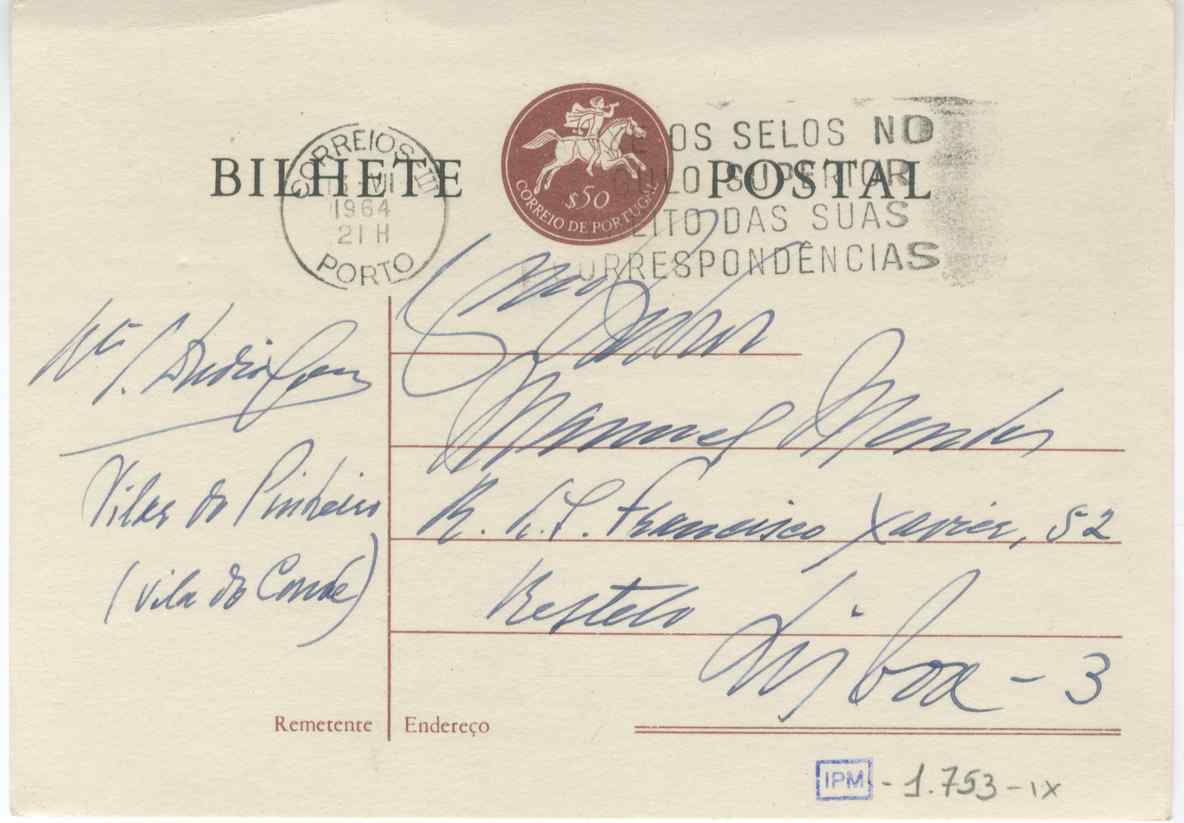 BILHETE POSTAL
CORREIOS
1964
21 H
PORTO
$50
CORREIO DE PORTUGAL
OS SELOS NO
SUPERIOR
DAS SUAS
CORRESPONDÊNCIAS
Vilar do Pinheiro
(Vila do Conde)
Manuel Mendes
R. S. Francisco Xavier, 52
Restelo
Lisboa - 3
Remetente
Endereço
IPM - 1.753-IX